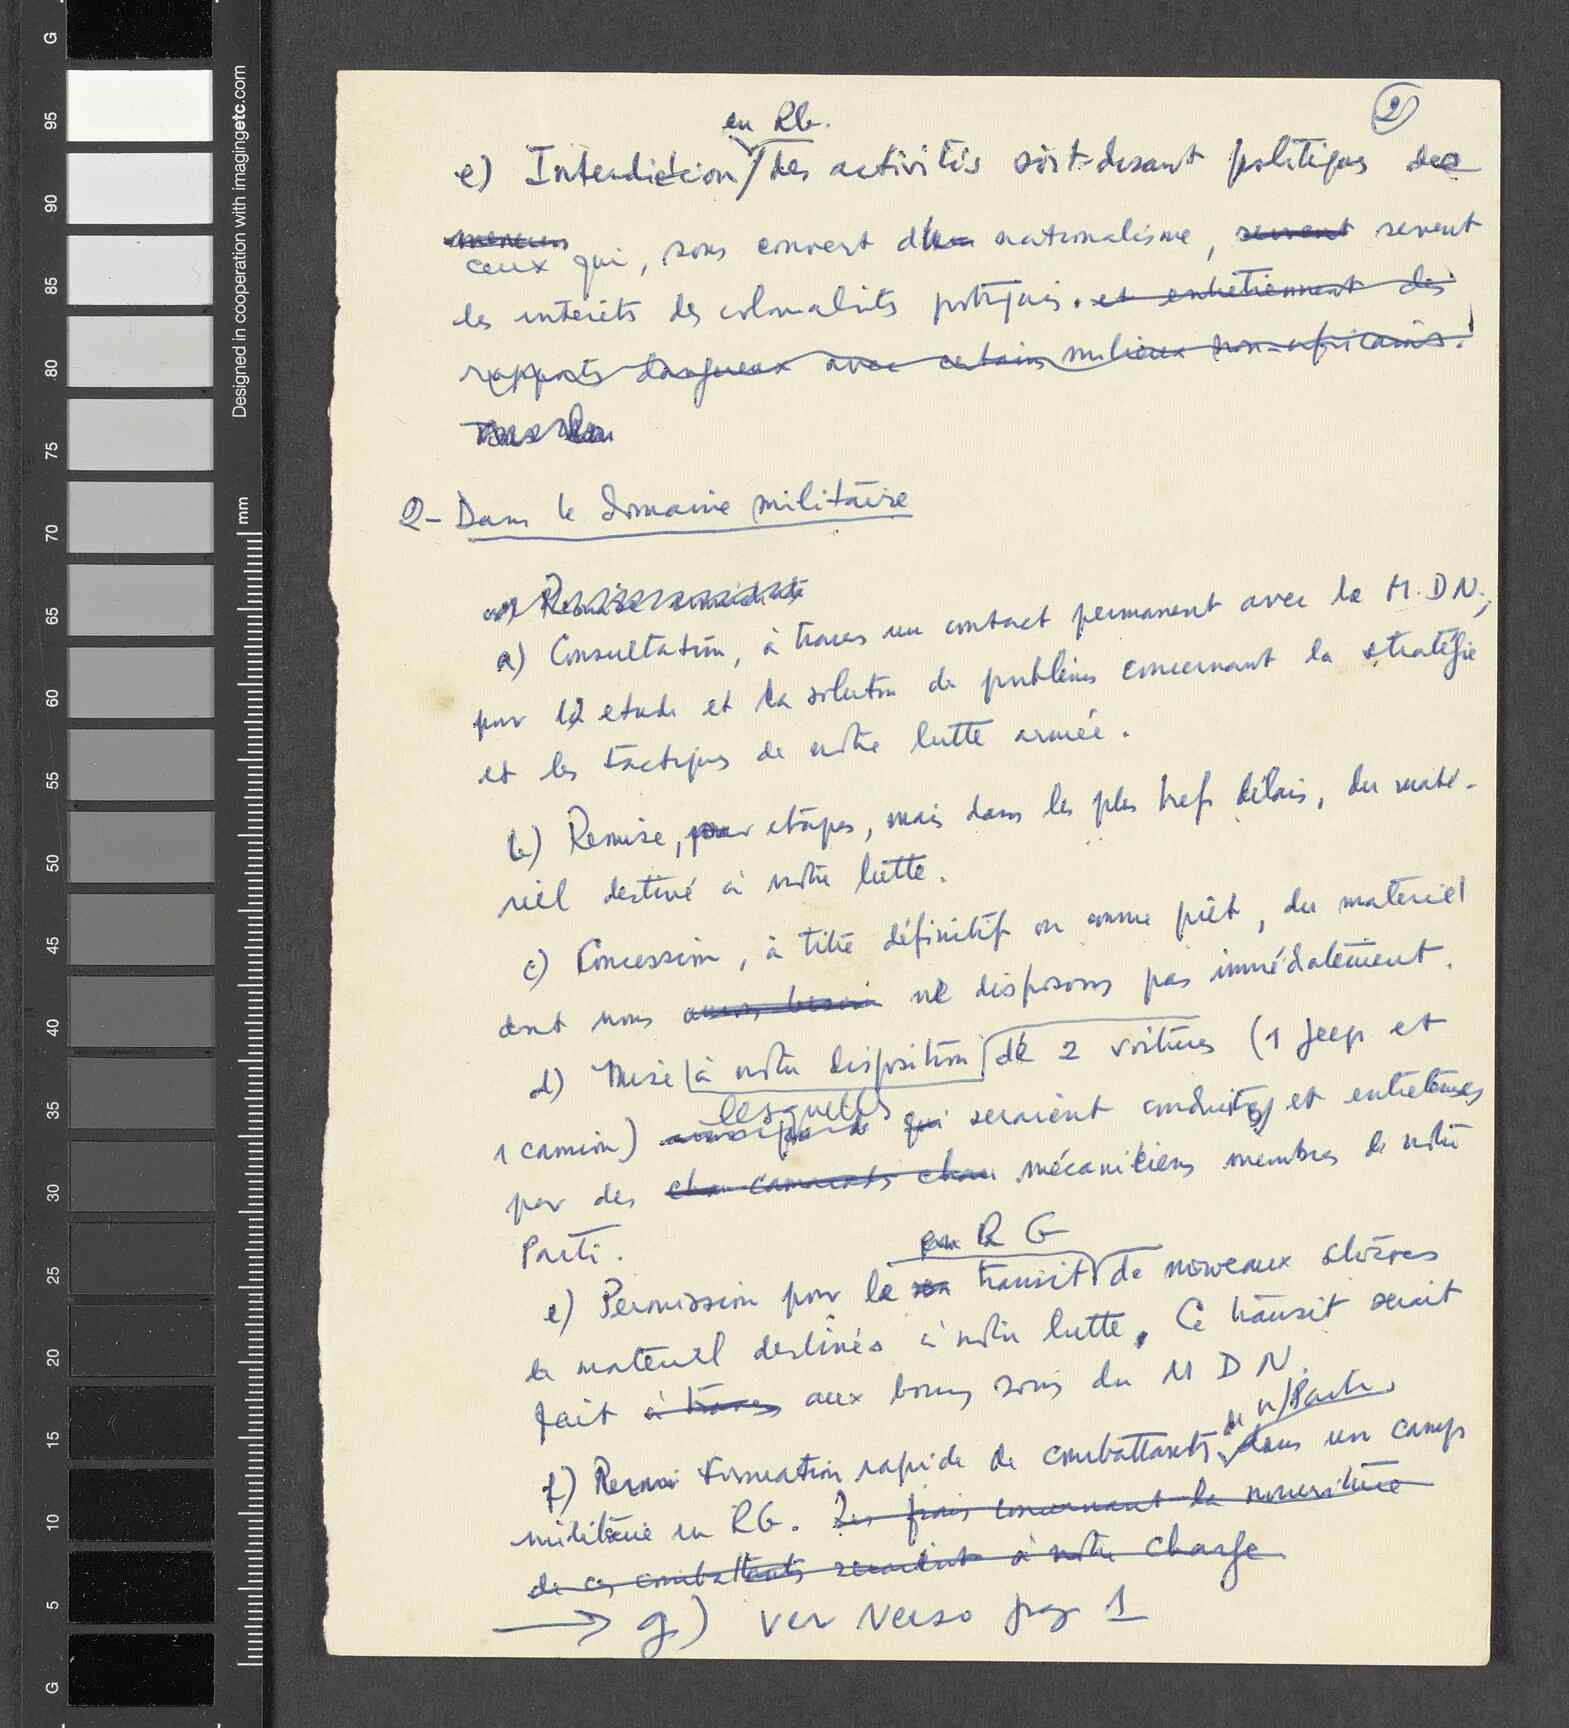 G
95
90
85
80
75
70
65
60
55
50
45
40
35
30
25
20
15
10
5
G
Designed in cooperation with imagingetc.com
mm
2
en RG.
e) Interdiction des activités soit-disant politiques des
meneurs
ceux qui, sous couvert d'un nationalisme, servent servent
les intérêts des colonialists portugais. et entretiennent des
rapports dangereux avec certains milieux non-africains.
2- Dans le domaine militaire
a) Remise immédiate
a) Consultation, à travers un contact permanent avec le M.D.N.,
pour la etude et la solution de problèmes concernant la stratégie
et les tactiques de notre lutte armée.
b) Remise, par etapes, mais dans les plus brefs délais, du maté-
riel destiné à notre lutte.
c) Concession, à titre définitif ou comme prêt, du materiel
dont nous avons besoin ne disposons pas immédiatement.
d) Mise à notre disposition de 2 voitures (1 jeep et
lesquelles
1 camion) qui seraient conduites et entretenues
par des camarades mécaniciens membres de notre
Parti.
en R G
e) Permission pour le transit de nouveaux
de materiel destinés à notre lutte. Ce transit serait
fait à travers aux bons soins du M D N.
de n/Parti.
f) Formation rapide de combattants dans un camp
militaire en RG. Les frais concernant la nourriture
de ces combattants seraient à notre charge
→ g) ver verso pag 1